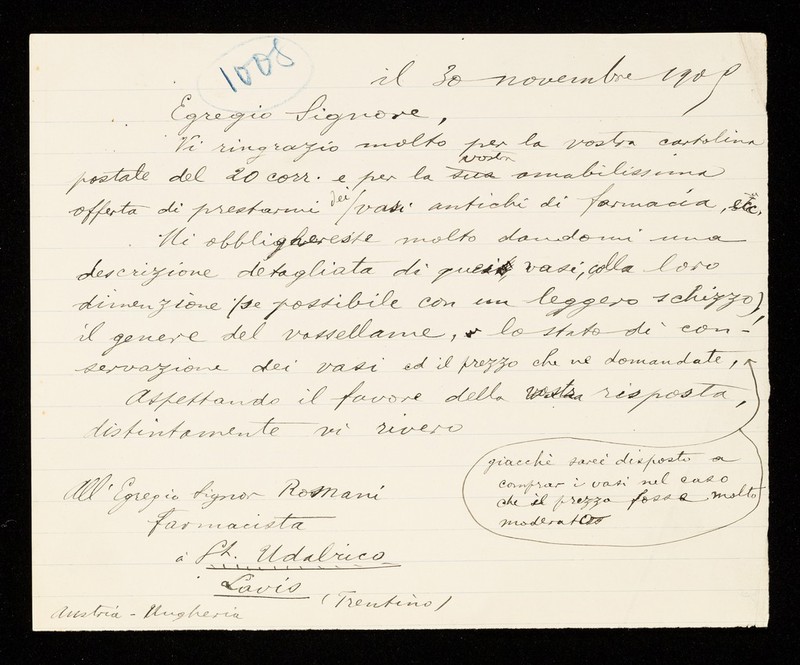 1008
il 30 novembre 1905
Egregio Signore,
Vi ringrazio molto per la vostra cartolina
postale del 20 corr. e per la sua vostra amabilissima
offerta di prestarmi dei / vasi antichi di farmacia, etc.
Mi obblighereste molto dandomi una
descrizione detagliata di questi vasi, colla loro
dimenzione (se possibile con un leggero schizzo),
il genere del vassellame, lo stato di con-
servazione dei vasi ed il prezzo che ne domandate,
Aspettando il favore della vostra risposta,
distintamente vi rivero
giacchè sarei disposto a
comprar i vasi nel caso
che il prezzo fosse molto
moderato
All' Egregio Signor Romani
farmacista
à St. Udalrico
Lavis
(Trentino)
Austria - Ungheria